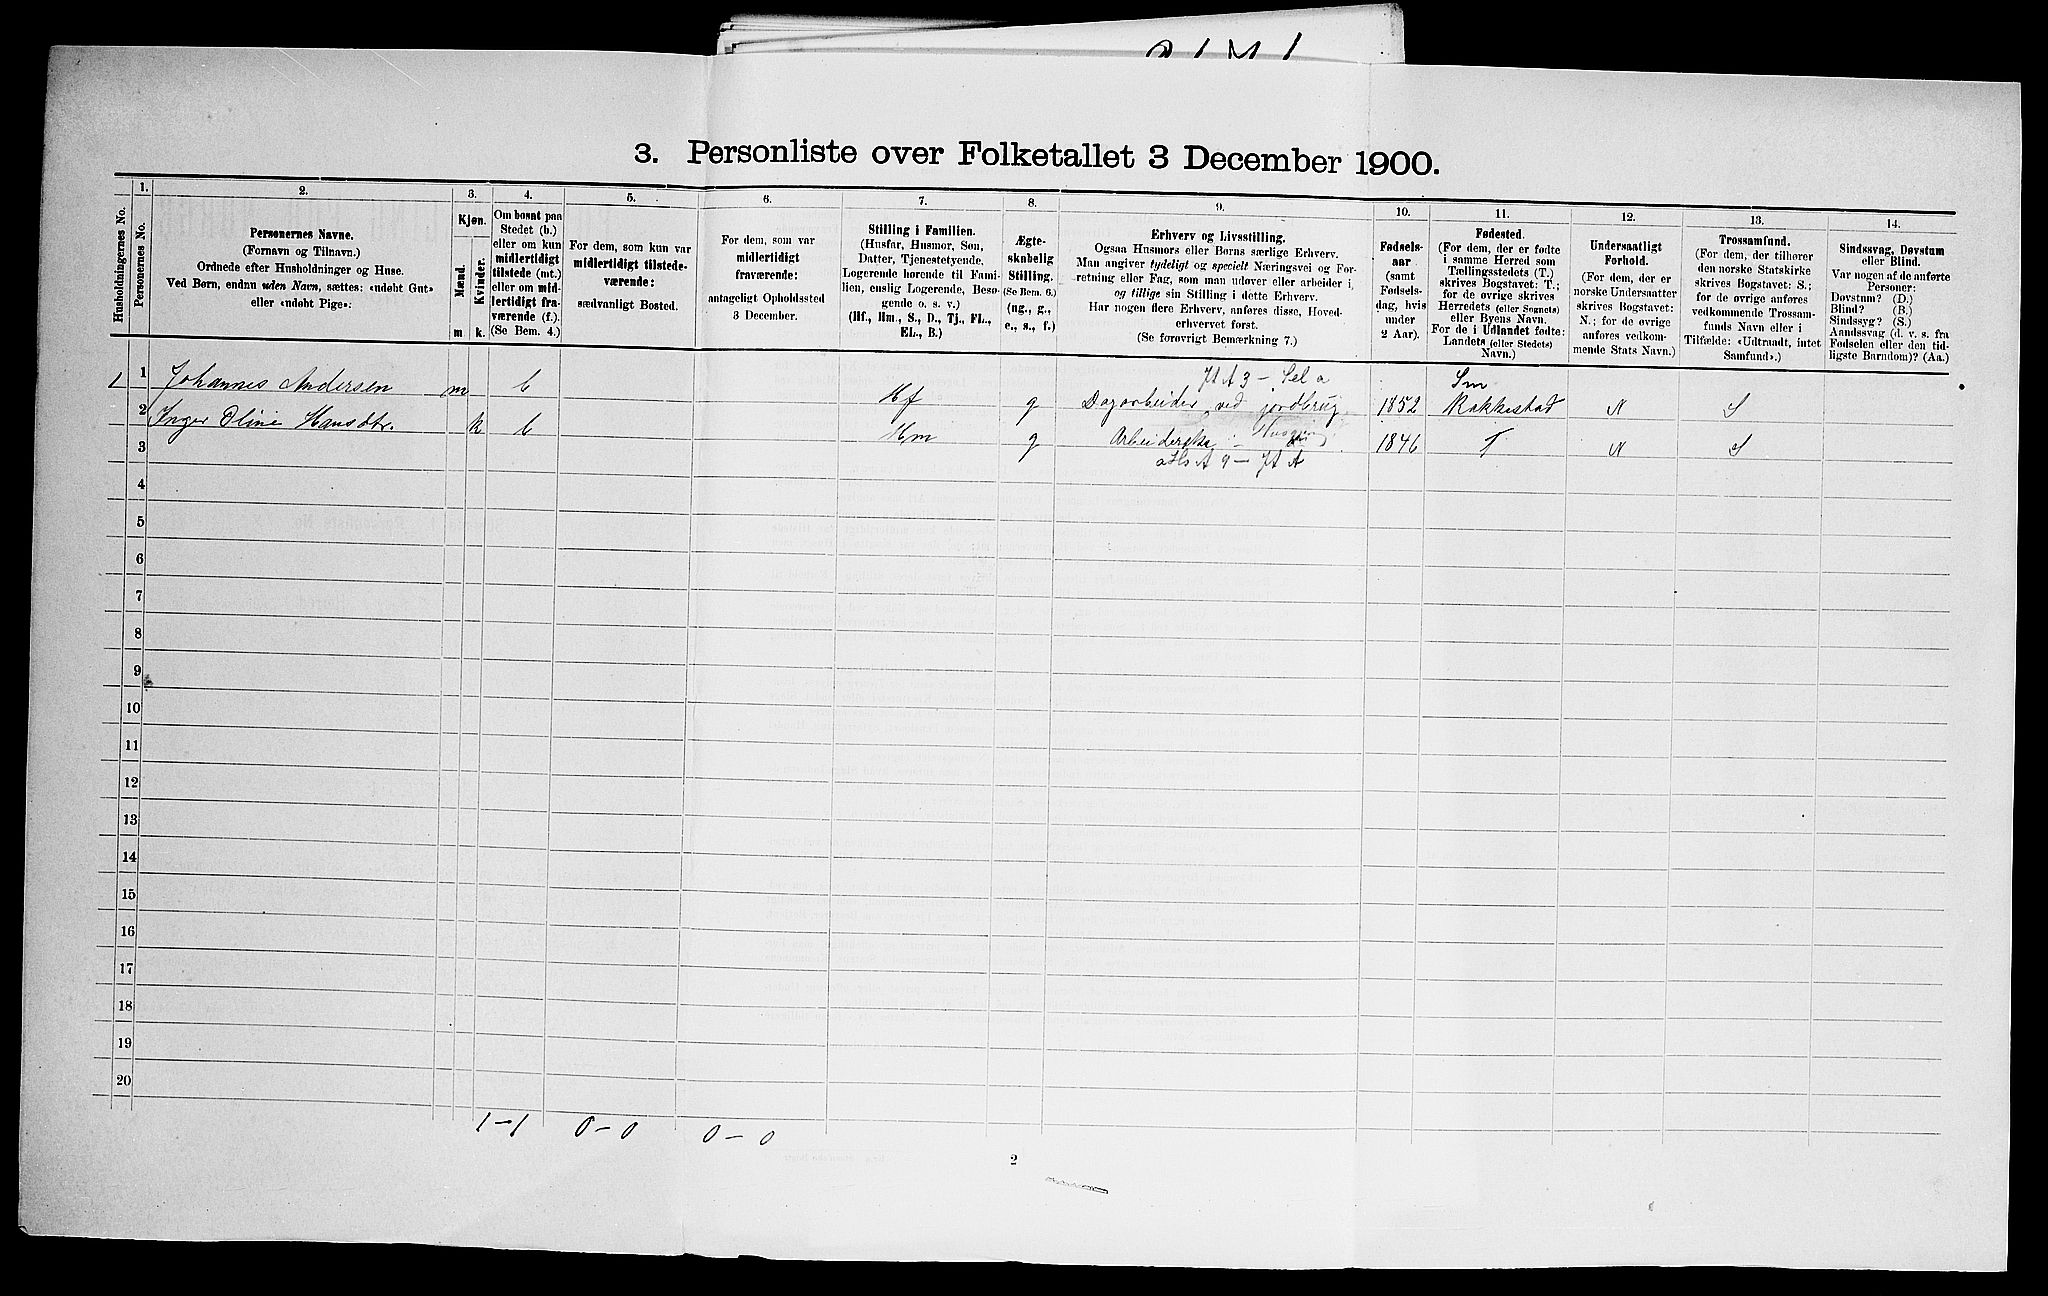 3. Personliste over Folketallet 3 December 1900.
Husholdningernes No.
1.
Personernes No.
2.
Personernes Navne.
(Fornavn og Tilnavn.)
Ordnede efter Husholdninger og Huse.
Ved Børn, endnu uden Navn, sættes: «udøbt Gut»
eller «udøbt Pige».
3.
Kjøn.
Mænd.
Kvinder.
m.
k.
4.
Om bosat paa
Stedet (b.)
eller om kun
midlertidigt
tilstede (mt.)
eller om mid-
lertidigt fra-
værende (f.).
(Se Bem. 4.)
5.
For dem, som kun var
midlertidigt tilstede-
værende:
sædvanligt Bosted.
6.
For dem, som var
midlertidigt
fraværende:
antageligt Opholdssted
3 December.
7.
Stilling i Familien.
(Husfar, Husmor, Søn,
Datter, Tjenestetyende,
Logerende hørende til Fami-
lien, enslig Logerende, Besø-
gende o. s. v.)
(Hf., Hm., S., D., Tj., FL.,
EL., B.)
8.
Ægte-
skabelig
Stilling.
(Se Bem. 6.)
(ug., g.,
e., s., f.)
9.
Erhverv og Livsstilling.
Ogsaa Husmors eller Børns særlige Erhverv.
Man angiver tydeligt og specielt Næringsvei og For-
retning eller Fag, som man udøver eller arbeider i,
og tillige sin Stilling i dette Erhverv.
Har nogen flere Erhverv, anføres disse, Hoved-
erhvervet først.
(Se forøvrigt Bemærkning 7.)
10.
Fødsels-
aar
(samt
Fødsels-
dag, hvis
under
2 Aar).
11.
Fødested.
(For dem, der er fødte
i samme Herred som
Tællingsstedets (T.)
skrives Bogstavet: T.;
for de øvrige skrives
Herredets (eller Sognets)
eller Byens Navn.
For de i Udlandet fødte:
Landets (eller Stedets)
Navn.)
12.
Undersaatligt
Forhold.
(For dem, der er
norske Undersaatter
skrives Bogstavet:
N.; for de øvrige
anføres vedkom-
mende Stats Navn.)
13.
Trossamfund.
(For dem, der tilhører
den norske Statskirke
skrives Bogstavet: S.;
for de øvrige anføres
vedkommende Trossam-
funds Navn eller i
Tilfælde: «Udtraadt, intet
Samfund».)
14.
Sindssvag, Døvstum
eller Blind.
Var nogen af de anførte
Personer:
Døvstum? (D.)
Blind? (B.)
Sindssyg? (S.)
Aandssvag (d. v. s. fra
Fødselen eller den tid-
ligste Barndom)? (Aa.)
Jd A 3 – Sel a Sm
1 1 Johannes Andersen m b Hf g Dagarbeider ved jordbrug 1852 Rakkestad N S
2 Inger Oline Hansdtr. k b Hm g Arbeiderske i Husgjerning 1846 T N S
3
4
5
6
7
8
9
10
11
12
13
14
15
16
17
18
19
20
1–1 0–0 0–0
2